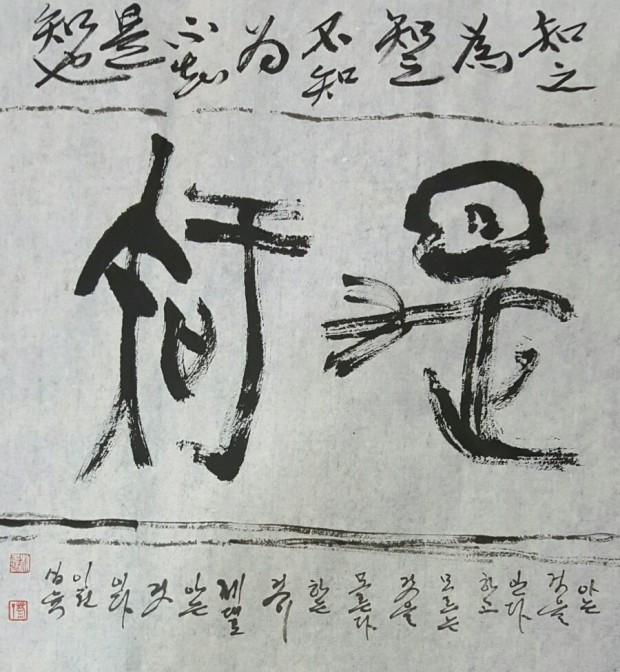 知之為知之不知为不知是知也
是何
아는 것을 안다 하고 모르는 것을 모른다 하는 것이 제댈 아는 것이다 이천 십육